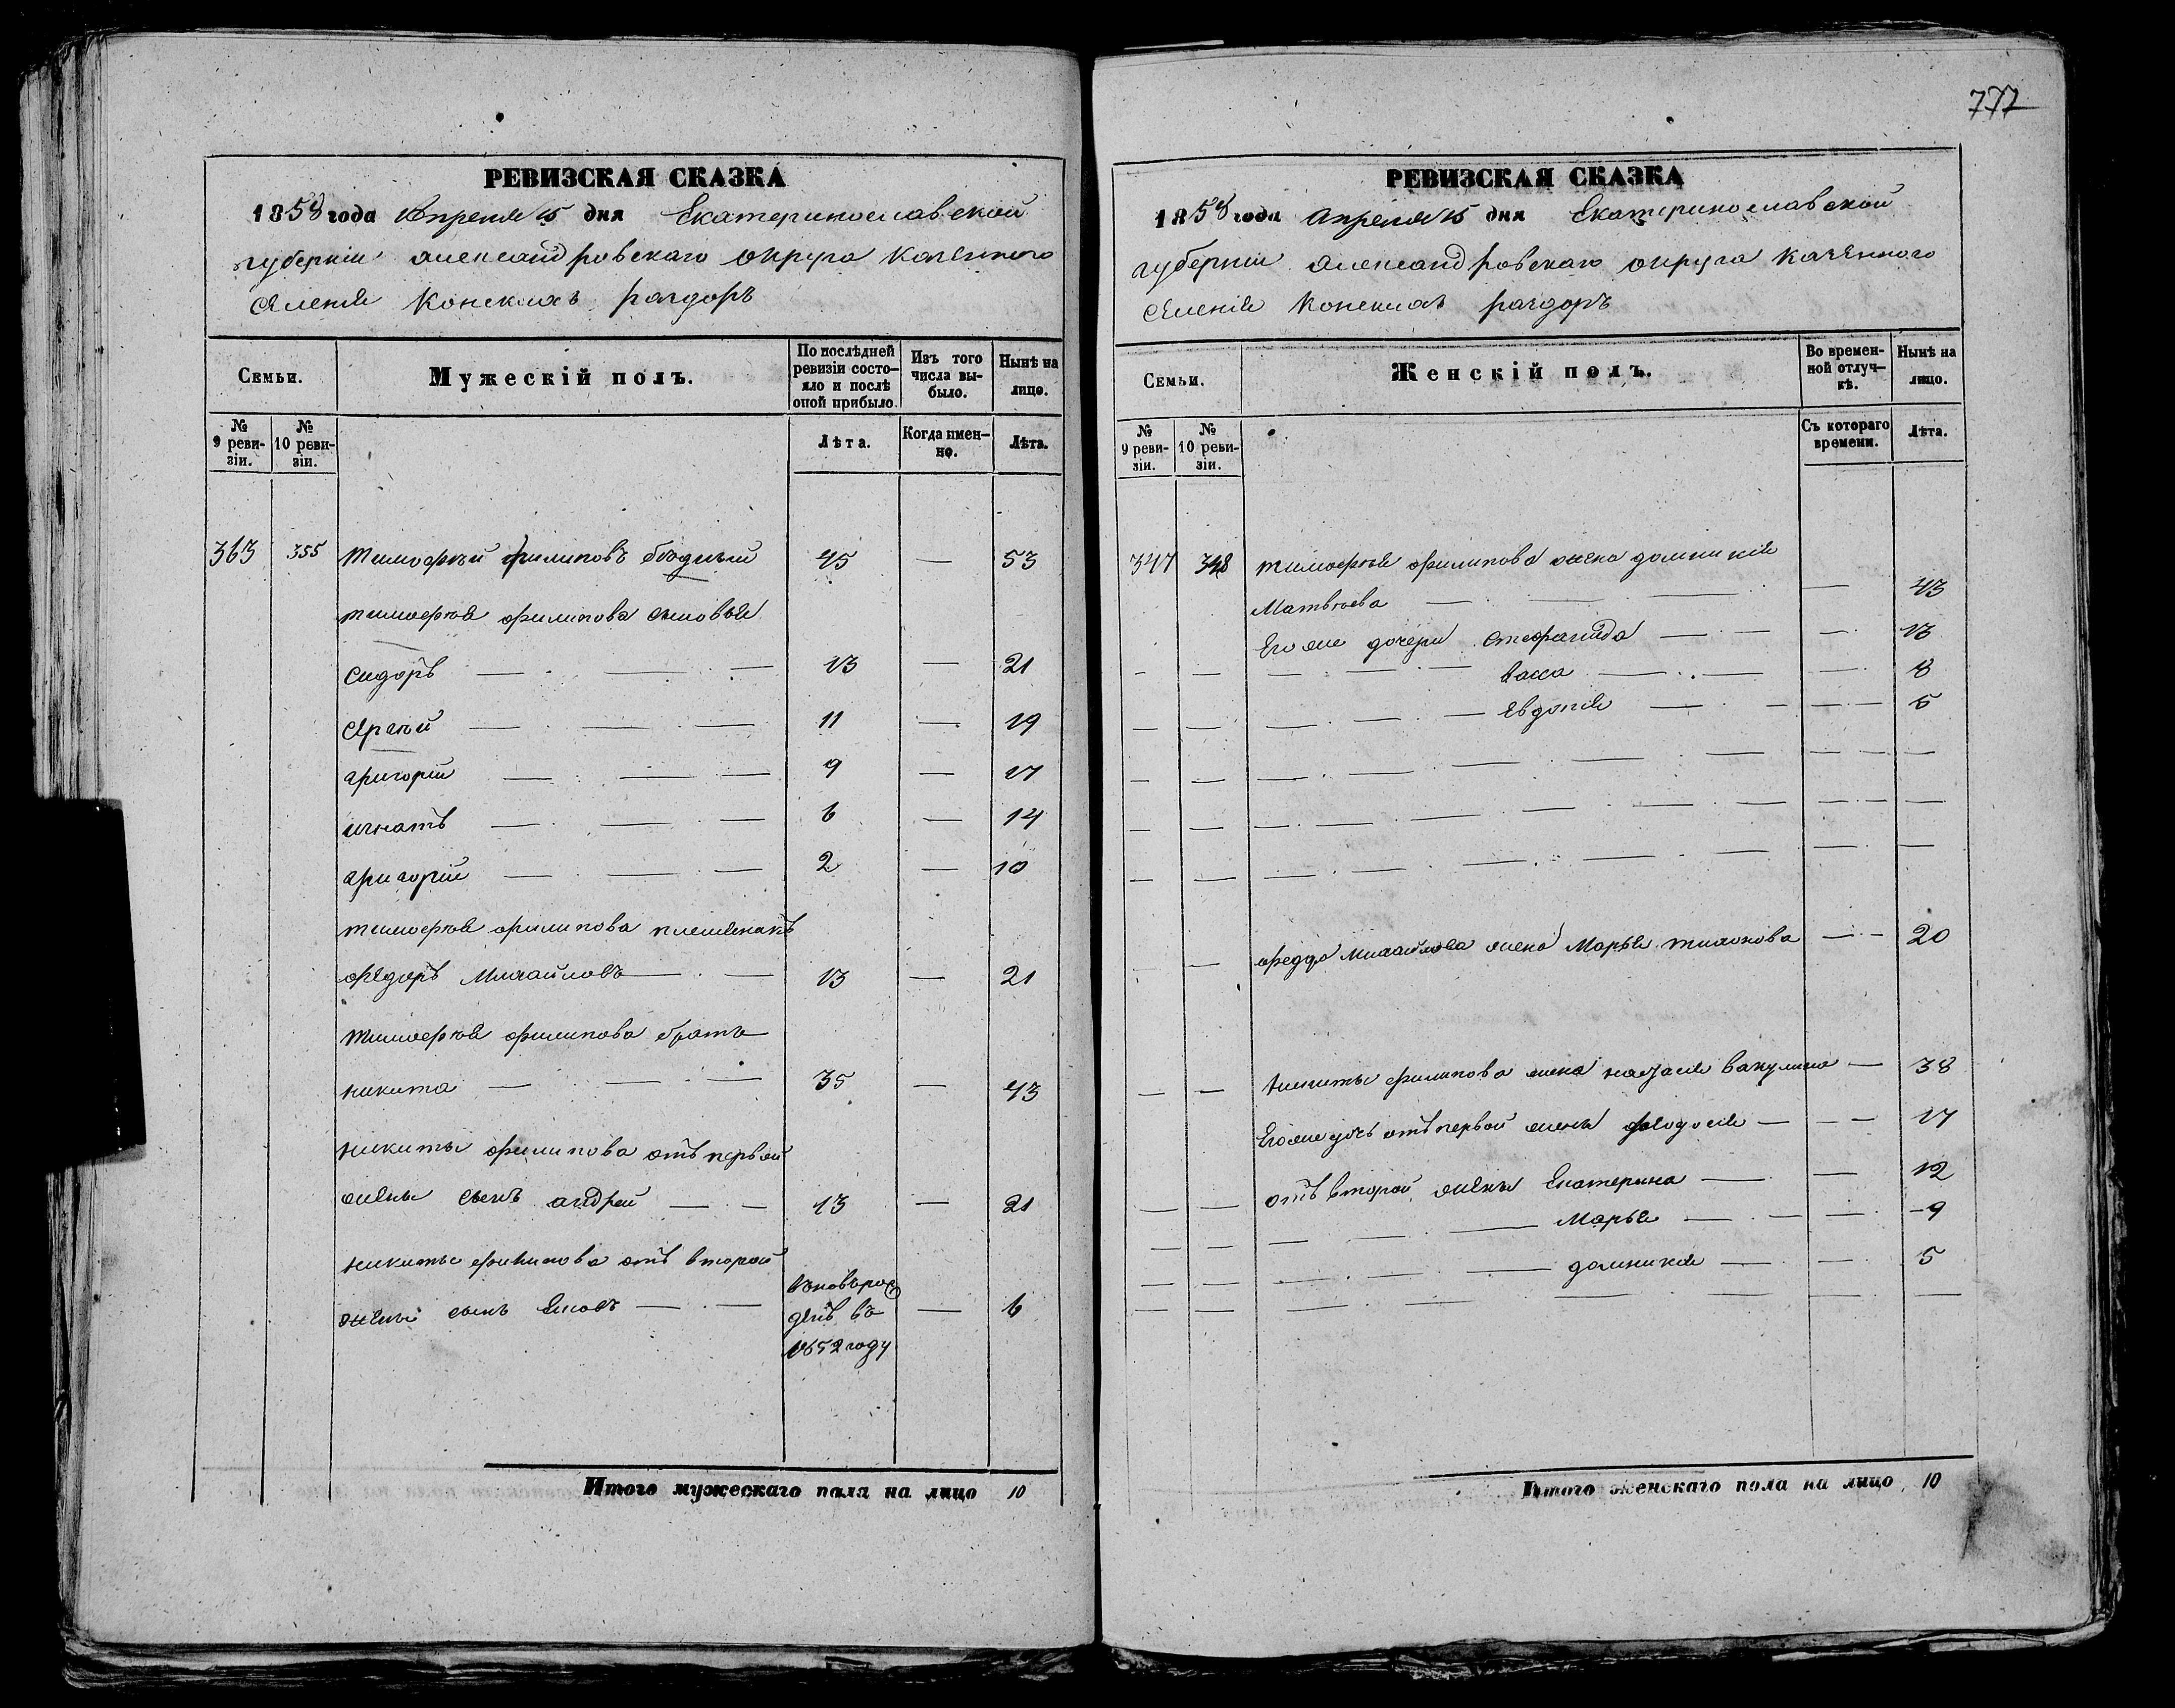 777
РЕВИЗСКАЯ СКАЗКА
1858 года Апреля 15 дня Екатеринославской
губерніи александровскаго округа казенного
селенія Конскихъ раздоръ
Семьи.
Мужескій полъ.
По послѣдней ревизіи состояло и послѣ оной прибыло
Изъ того числа выбыло.
Нынѣ на лицо.
№ 9 ревизіи.
№ 10 ревизіи.
Лѣта.
Когда именно.
Лѣта.
363 355 Тимофей филиповъ 45 — 53
тимофея филипова сыновья
Сидоръ — — — 13 — 21
Сергей — — — 11 — 19
григорій — — — 9 — 17
игнатъ — — — 6 — 14
григорій — — — 2 — 10
тимофея филипова племенникъ
федоръ Михайловъ — — 13 — 21
Тимофея филипова братъ
никита — — — 35 — 43
никиты филипова отъ первой
жены сынъ андрей — — 13 — 21
никиты филипова отъ второй
жены сынъ — — вновьрожденъ въ 1852 году — 6
Итого мужескаго пола на лицо 10
РЕВИЗСКАЯ СКАЗКА
1858 года Апреля 15 дня Екатеринославской
губерніи Александровскаго округа казенного
селенія Конскихъ раздоръ
Семьи.
Женскій полъ.
Во временной отлучкѣ.
Нынѣ на лицо.
№ 9 ревизіи.
№ 10 ревизіи.
Съ котораго времени.
Лѣта.
347 348 тимофея филипова жена домникія
Матвѣева — — — — 43
Его же дочери Стефанида — — — 13
васса — — — 8
Евдокія — — — 5
федора Михайлова жена Марья тихонова — — 20
Никиты филипова жена настасія вакулина — 38
Его же дочь отъ первой жены феодосія — — — 17
отъ второй жены Екатерина — — 12
Марья — — — 9
домникія — — 5
Итого женскаго пола на лицо 10